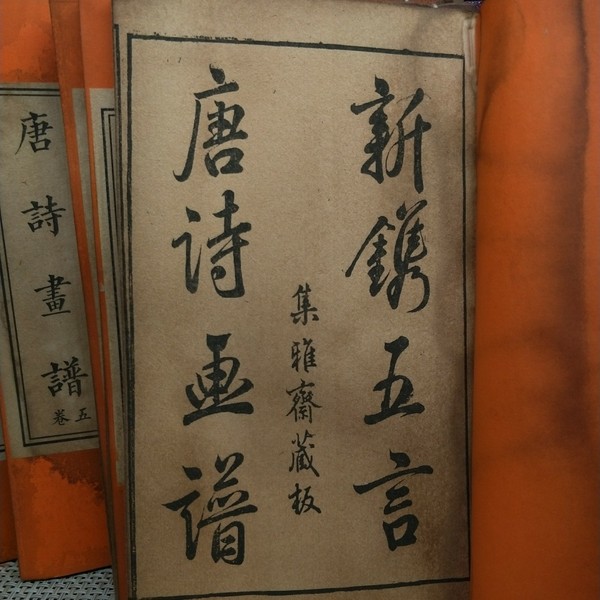 新鐫五言
集雅齋藏板
唐詩画譜
唐詩畫譜
卷五